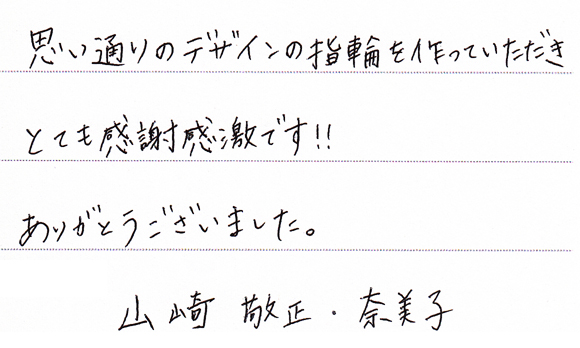 思い通りのデザインの指輪を作っていただき
とても感謝感激です!!
ありがとうございました。
山崎 敬正・奈美子